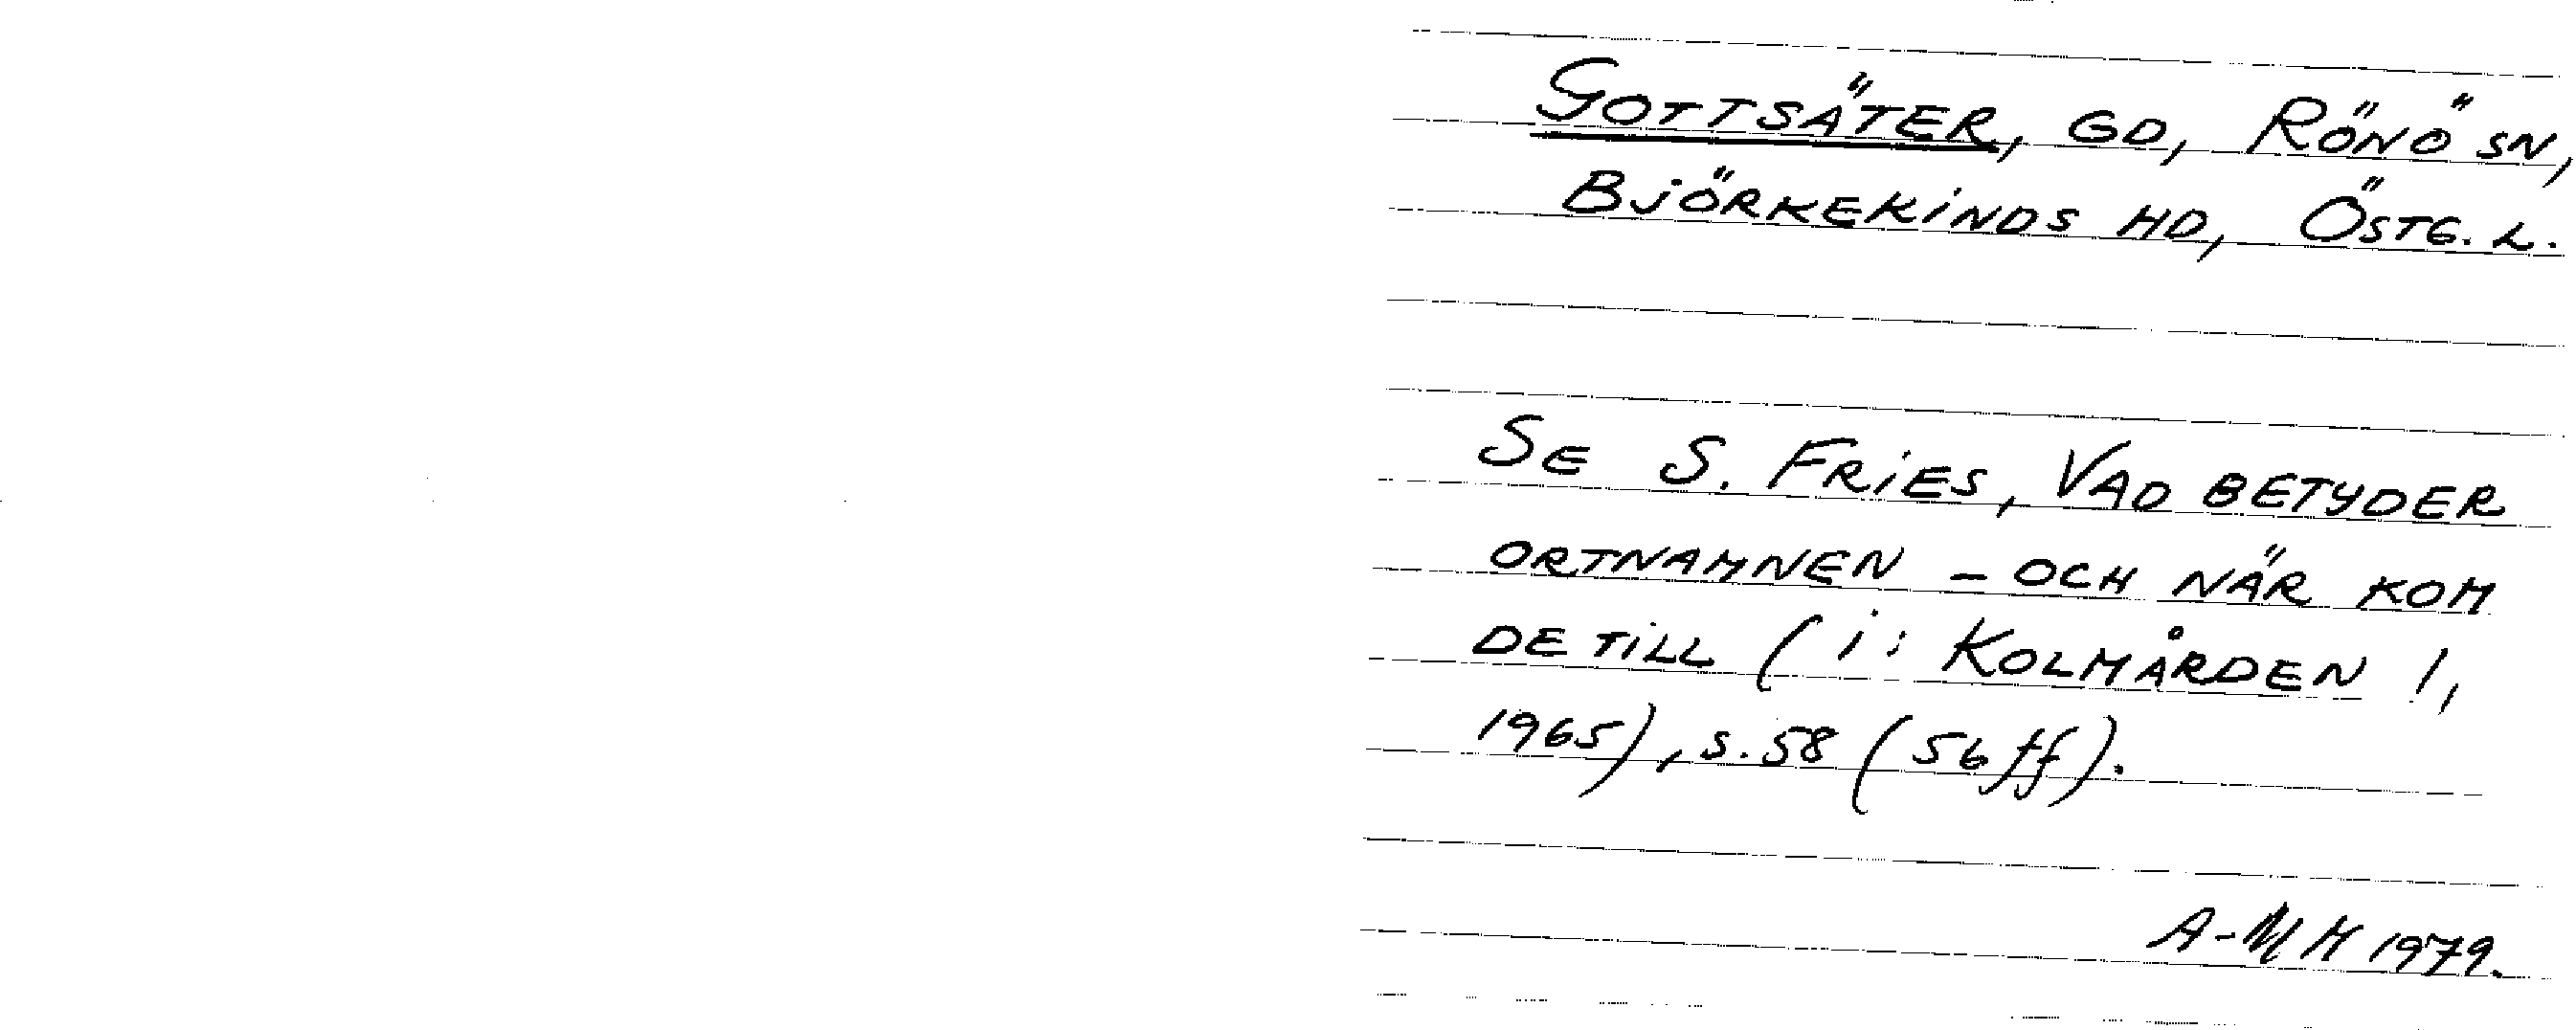 GOTTSÄTER, GD, RÖNÖ SN,
BJÖRKEKINDS HD, ÖSTG. L.
SE S. FRIES, VAD BETYDER
ORTNAMNEN – OCH NÄR KOM
DE TILL (i: KOLMÅRDEN 1,
1965), s. 58 (56 ff).
A-MH 1979.